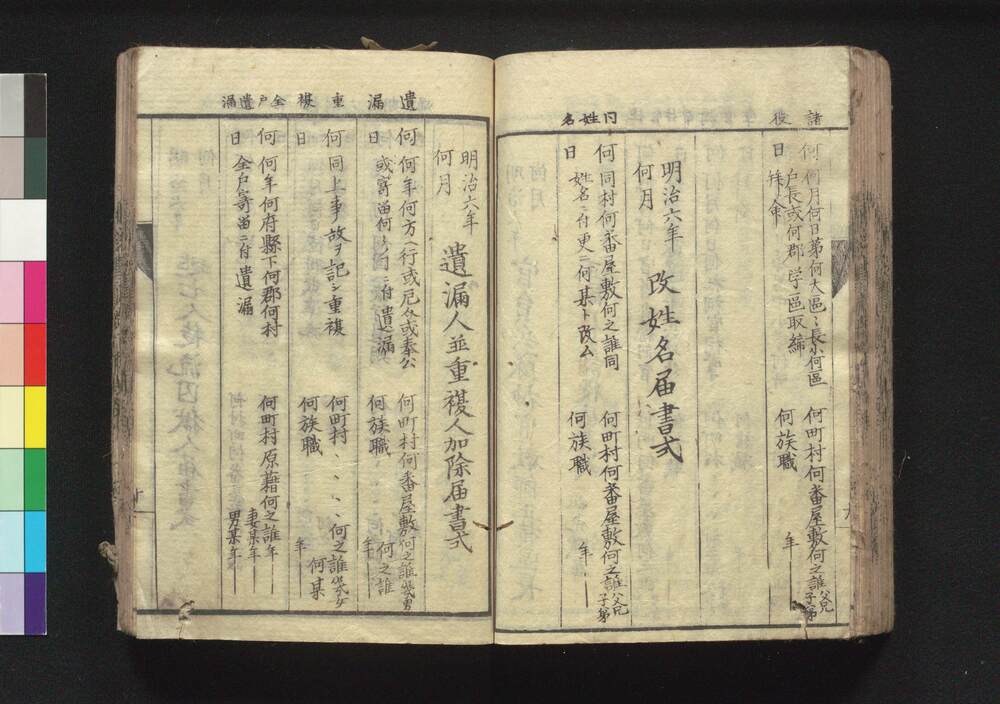 諸役
何 何月何日第何大區〻長小何區
日 戸長或何郡学區取締
拝命
何町村何番屋敷何之誰父兄子弟
何族職 年
同姓名
明治六年
何月
改姓名届書式
何 同村何番屋敷何之誰同
日 姓名ニ付更ニ何某ト改ム
何町村何番屋敷何之誰父兄子弟
何族職 年
遺漏
明治六年
何月
遺漏人並重複人加除届書式
何 何年何方へ行或厄介或奉公
日 或寄留何〻ニ付遺漏
何町村何番屋敷何之誰幾男
何族職 何之誰
年
重複
何 同上事故ヲ記シ重複
日
何町村、、、何之誰幾女
何族職 何某
年
全戸遺漏
何 何年何府縣下何郡何村
日 全戸寄留ニ付遺漏
何町村原籍何之誰年
妻某年
男某年